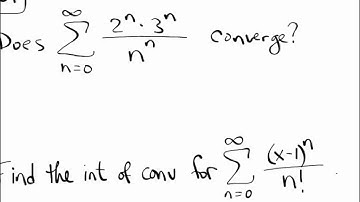 Does ∞∑n=0 2ⁿ·3ⁿ/nⁿ converge?
Find the int of conv for ∞∑n=0 (x-1)ⁿ/n! .